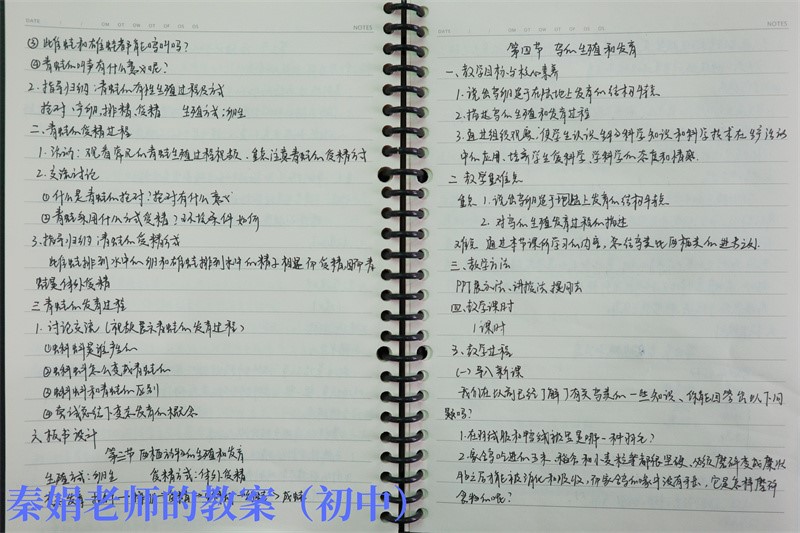 DATE
NOTES
③雌蛙和雄蛙都能鸣叫吗?
④青蛙的鸣声有什么意义呢?
2.指导归纳:青蛙的有性生殖过程及方式
抱对、产卵、排精、受精 生殖方式:卵生
二、青蛙的受精过程
1.活动:观看常见的青蛙生殖过程视频、重点注意青蛙的受精方式
2.交流讨论
①什么是青蛙的抱对?抱对有什么意义
②青蛙采用什么方式受精?
3.指导归纳:青蛙的受精方式
雌蛙排到水中的卵和雄蛙排到水中的精子相遇而受精,因而青
蛙是体外受精
三、青蛙的发育过程
1.讨论交流(视频展示青蛙的发育过程)
①蝌蚪是谁产的
②蝌蚪怎么变成青蛙的
③蝌蚪和青蛙的区别
④尝试总结下变态发育的概念
六、板书设计
第三节 两栖动物的生殖和发育
生殖方式:卵生 受精方式:体外受精
秦娟老师的教案(初中)
DATE
NOTES
第四节 鸟的生殖和发育
一、教学目标与核心素养
1.说出鸟卵适于在陆地上发育的结构特点
2.描述鸟的生殖和发育过程
3.通过组织观察,使学生认识到科学知识和科学技术在生产生活
中的应用、培养学生爱科学、学科学的态度和情感.
二、教学重难点
重点 1.说出鸟卵适于陆地上发育的结构特点
2.对鸟的生殖发育过程的描述
难点 通过本节课所学习的内容,总结鸟类比两栖类的进步之处.
三、教学方法
PPT展示法、讲授法、提问法
四、教学课时
1课时
五、教学过程
(一)导入新课
我们在以前已经了解了有关鸟类的一些知识、你能回答出以下问
题吗?
1.在羽绒服和鸭绒被里是哪一种羽毛?
2.家鸽吃进的玉米、稻谷和小麦粒等都很坚硬、必须磨碎变成糜状
物之后才能被消化和吸收,而家鸽的喙中没有牙齿、它是怎样磨碎
食物的呢?